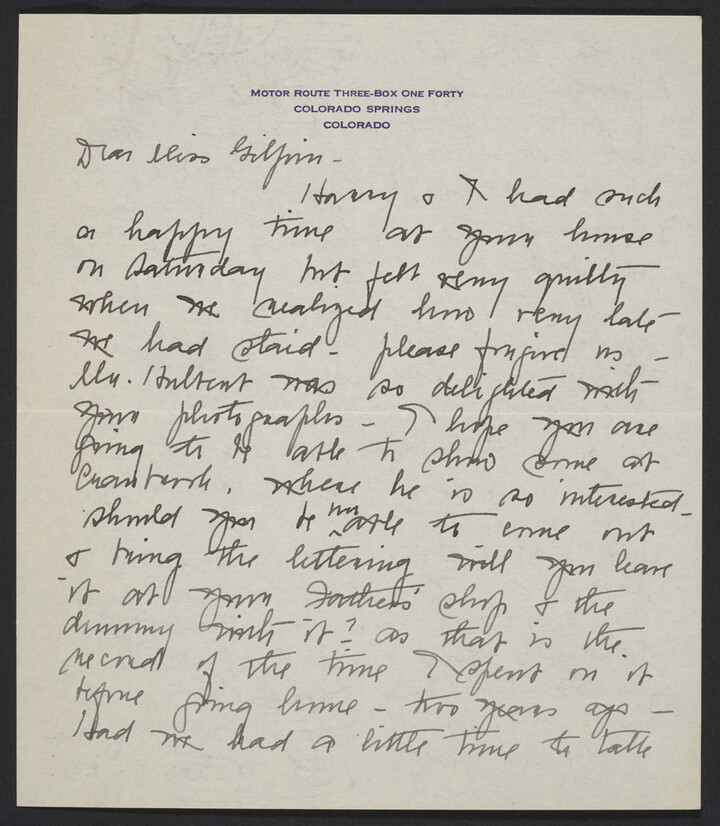 MOTOR ROUTE THREE-BOX ONE FORTY
COLORADO SPRINGS
COLORADO
Dear Miss Gilpin -
Harry & I had such
a happy time at your house
on Saturday but felt very guilty
when we realized how very late
we had staid - please forgive us -
Mr. Hulbert was so delighted with
your photographs - I hope you are
going to be able to show some at
Cranbrook, where he is so interested -
should you be unable to come out
& bring the lettering will you leave
it at your Father's shop & the
dummy with it? as that is the
record of the time I spent on it
before going home - two years ago -
Had we had a little time to talk